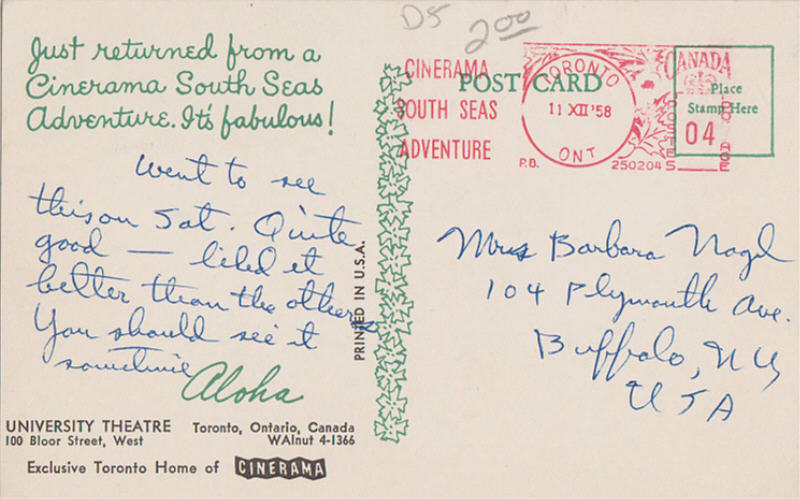 D5
2.00
Just returned from a
Cinerama South Seas
Adventure. It's fabulous!
Went to see
this on Sat. Quite
good — liked it
better than the others
You should see it
sometime
Aloha
UNIVERSITY THEATRE Toronto, Ontario, Canada
100 Bloor Street, West WAlnut 4-1366
Exclusive Toronto Home of CINERAMA
PRINTED IN U.S.A.
POST CARD
CINERAMA
SOUTH SEAS
ADVENTURE
TORONTO
11 XII '58
ONT
P.B.
250204
CANADA
POSTES
04
Place
Stamp Here
Mrs Barbara Nagel
104 Plymouth Ave.
Buffalo, NY
USA